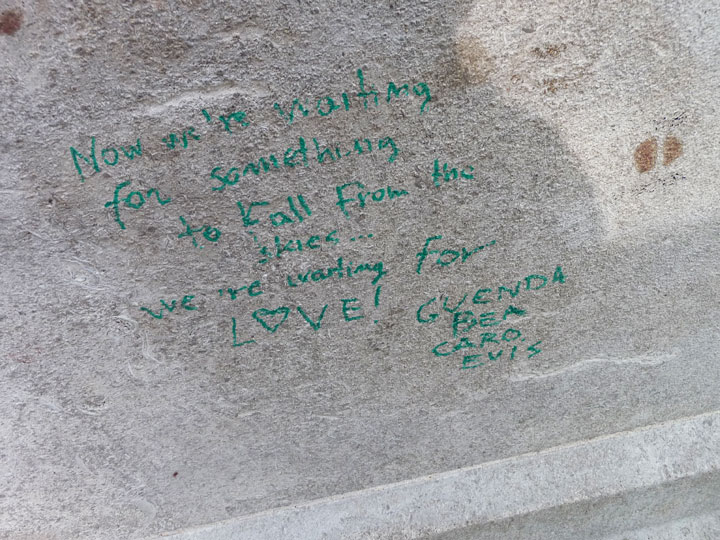 Now we're waiting
for something
to fall from the
skies...
we're waiting for
L♡VE!
GWENDA
BEA
CARO
EVIS